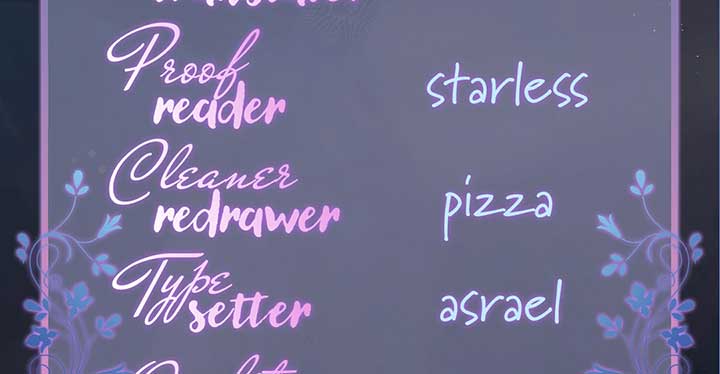 Proof
reader
starless
Cleaner
redrawer
pizza
Type
setter
asrael